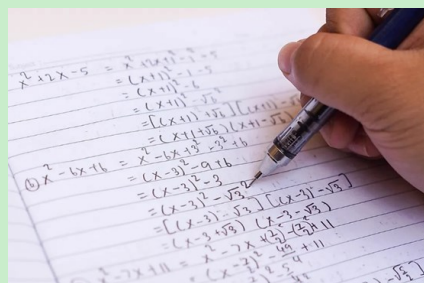 x² + 2x - 5 = x² + 2x + 1² - 1² - 5
= (x+1)² - 1 - 5
= (x+1)² - 6
= (x+1)² - √6²
= [(x+1)+√6][(x+1)-√
= (x+1+√6)(x+1-√
b) x² - 6x + 6 = x² - 6x + 3² - 3² + 6
= (x-3)² - 9 + 6
= (x-3)² - 3
= (x-3)² - √3²
= [(x-3) - √3][(x-3) - √3]
= (x-3+√3)(x-3-√3)
x² - 7x + 11 = x² - 7x + (7/2)² - (7/2)² + 11
= (x - 7/2)² - 49/4 + 11